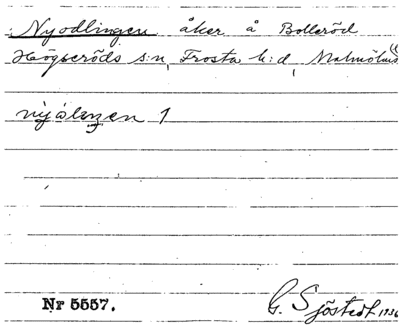 Nyodlingen åker å Bolleröd
Högseröds s:n, Frosta h:d, Malmöhus
1
Nr 5557.
G. Sjöstedt 1936